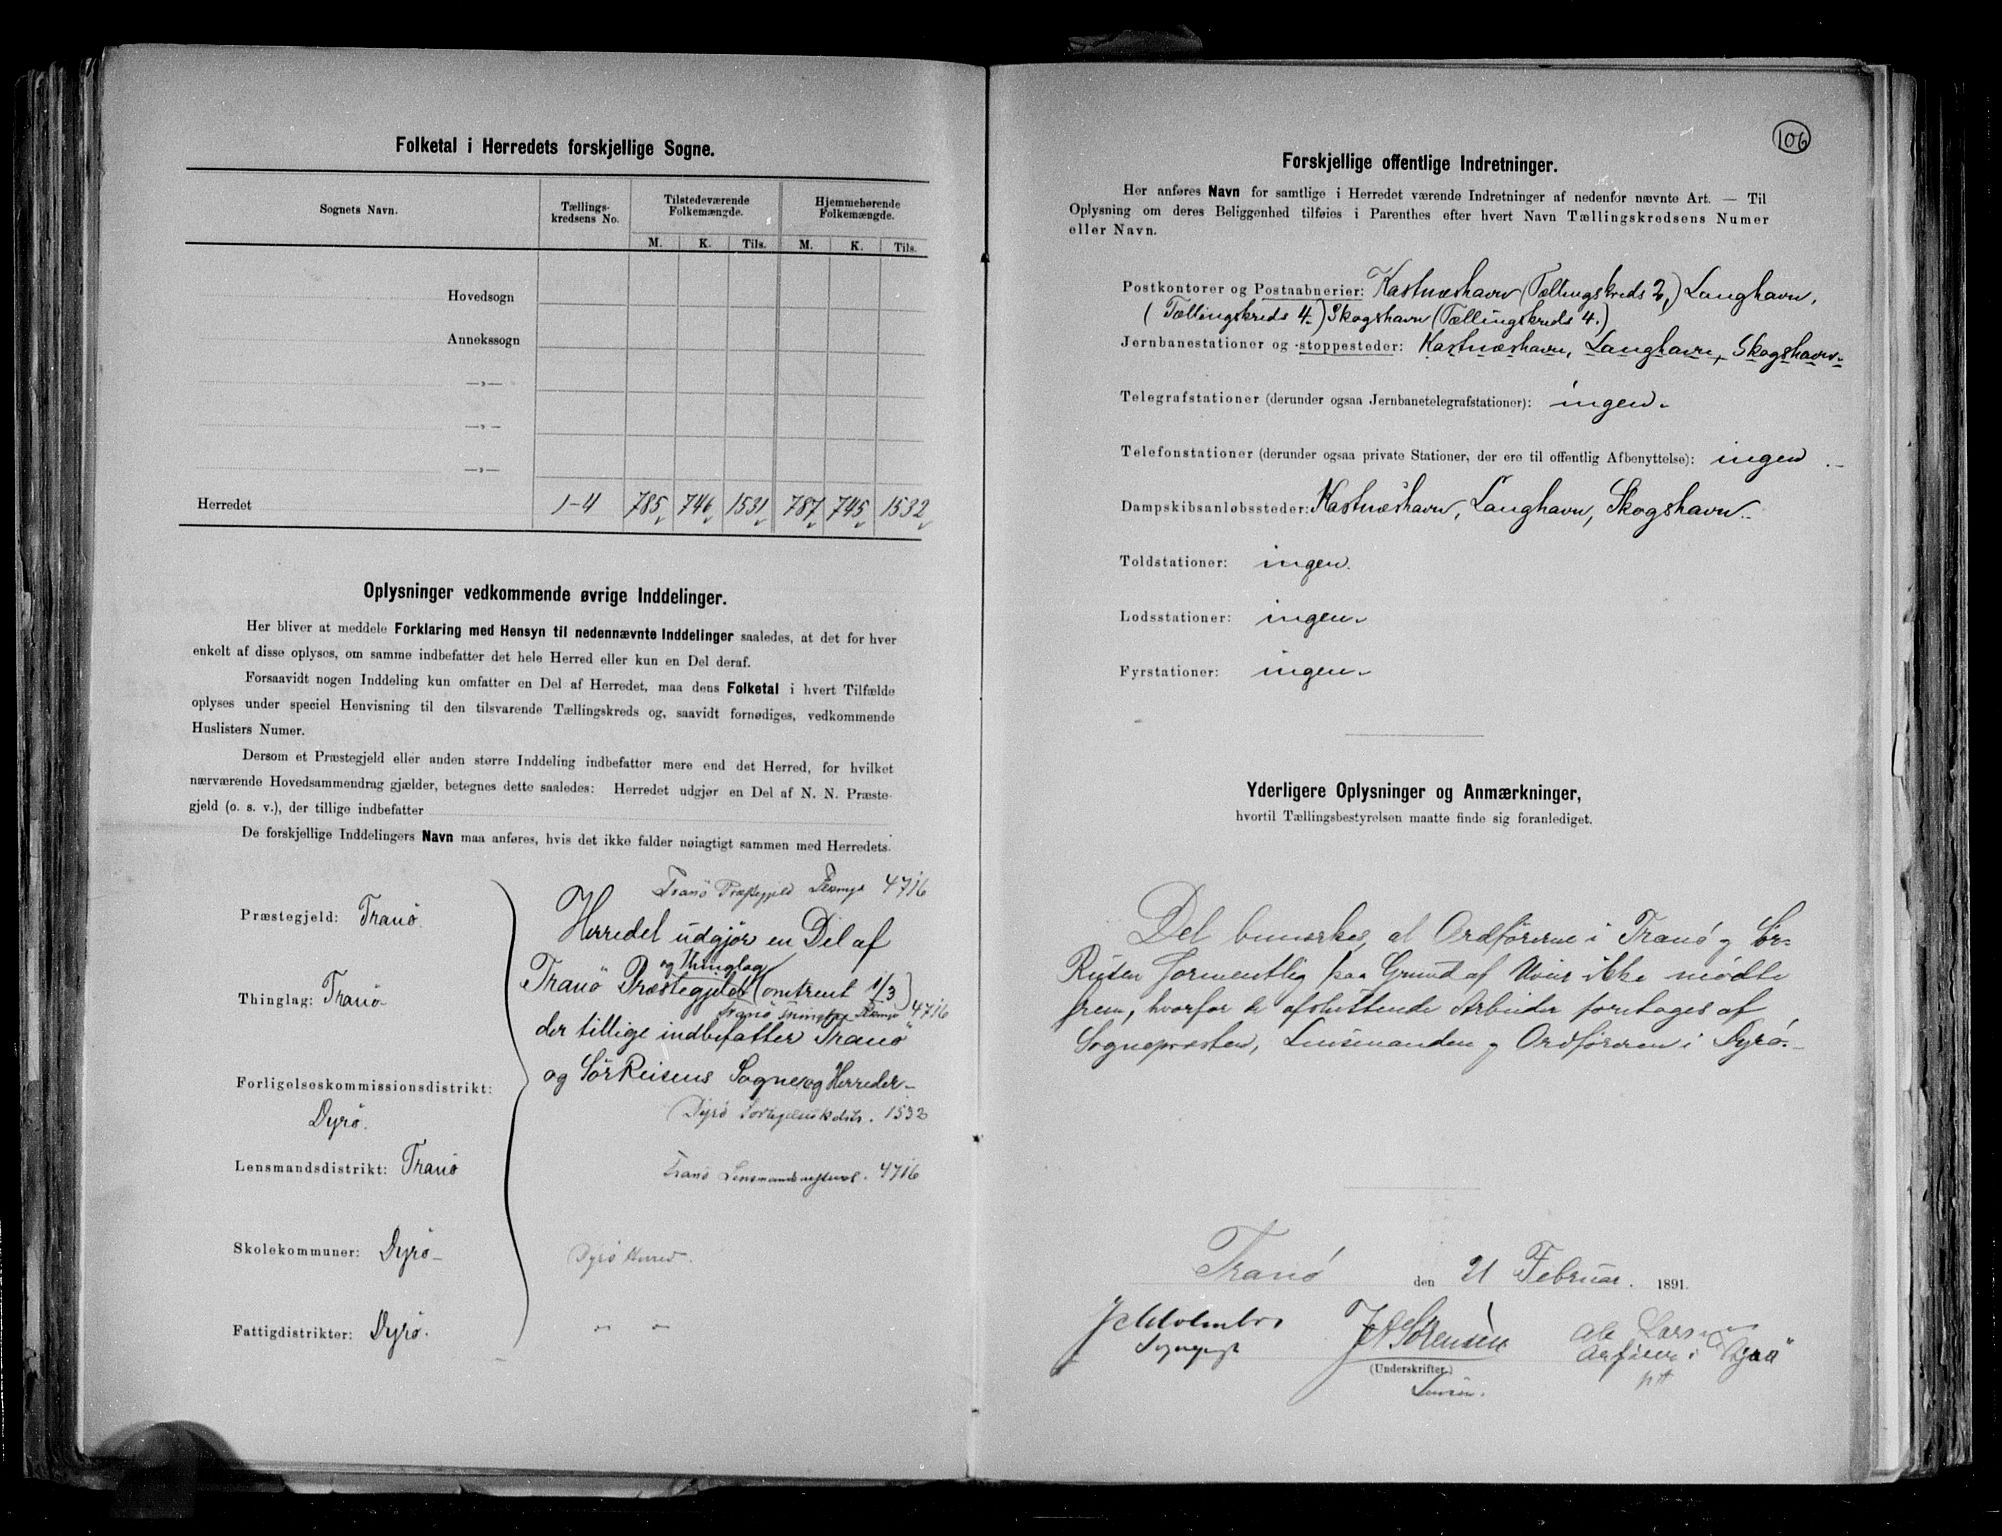 Folketal i Herredets forskjellige Sogne.
Sognets Navn.
Tællings-
kredsens No.
Tilstedeværende
Folkemængde.
Hjemmehørende
Folkemængde.
M. K. Tils. M. K. Tils.
Hovedsogn
Annekssogn
—»—
—»—
—»—
Herredet 1-4 785 746 1531 787 745 1532
Oplysninger vedkommende øvrige Inddelinger.
Her bliver at meddele Forklaring med Hensyn til nedennævnte Inddelinger saaledes, at det for hver
enkelt af disse oplyses, om samme indbefatter det hele Herred eller kun en Del deraf.
Forsaavidt nogen Inddeling kun omfatter en Del af Herredet, maa dens Folketal i hvert Tilfælde
oplyses under speciel Henvisning til den tilsvarende Tællingskreds og, saavidt fornødiges, vedkommende
Huslisters Numer.
Dersom et Præstegjeld eller anden større Inddeling indbefatter mere end det Herred, for hvilket
nærværende Hovedsammendrag gjælder, betegnes dette saaledes: Herredet udgjør en Del af N. N. Præste-
gjeld (o. s. v.), der tillige indbefatter
De forskjellige Inddelingers Navn maa anføres, hvis det ikke falder nøiagtigt sammen med Herredets.
Tranö Præstegjeld 4716
Præstegjeld: Tranö.
Herredet udgjør en Del af
og Thinglag
Tranö Præstegjeld (omtrent 1/3)
Thinglag: Tranö
Tranö 4716
der tillige indbefatter Tranö
og SörReisens Sogne og Herreder
Forligelseskommissionsdistrikt:
Dyrö.
Dyrö 1532
Lensmandsdistrikt: Tranö
Tranö 4716
Skolekommuner: Dyrö
Dyrö Herred.
Fattigdistrikter: Dyrö.
106
Forskjellige offentlige Indretninger.
Her anføres Navn for samtlige i Herredet værende Indretninger af nedenfor nævnte Art. — Til
Oplysning om deres Beliggenhed tilføies i Parenthes efter hvert Navn Tællingskredsens Numer
eller Navn.
Postkontorer og Postaabnerier: Kastnæshavn (Tællingskreds 2,) Langhavn,
(Tællingskreds 4.) Skogshavn (Tællingskreds 4.)
Jernbanestationer og -stoppesteder: Kastnæshavn, Langhavn, Skogshavn.
Telegrafstationer (derunder ogsaa Jernbanetelegrafstationer): ingen.
Telefonstationer (derunder ogsaa private Stationer, der ere til offentlig Afbenyttelse): ingen
Dampskibsanløbssteder: Kastnæshavn, Langhavn, Skogshavn.
Toldstationer: ingen.
Lodsstationer: ingen.
Fyrstationer: ingen.
Yderligere Oplysninger og Anmærkninger,
hvortil Tællingsbestyrelsen maatte finde sig foranlediget.
Det bemærkes, at Ordförerne i Tranö og Sör-
Reisen formentlig paa Grund af Uveir ikke mødte
frem, hvorfor de afsluttende Arbeider foretages af
Sognepræsten, Lensmanden og Ordföreren i Dyrö.
Tranö den 21 Februar. 1891.
Sognepr
J A Sörensen
Ole Larsen
i Dyrö
(Underskrifter.)